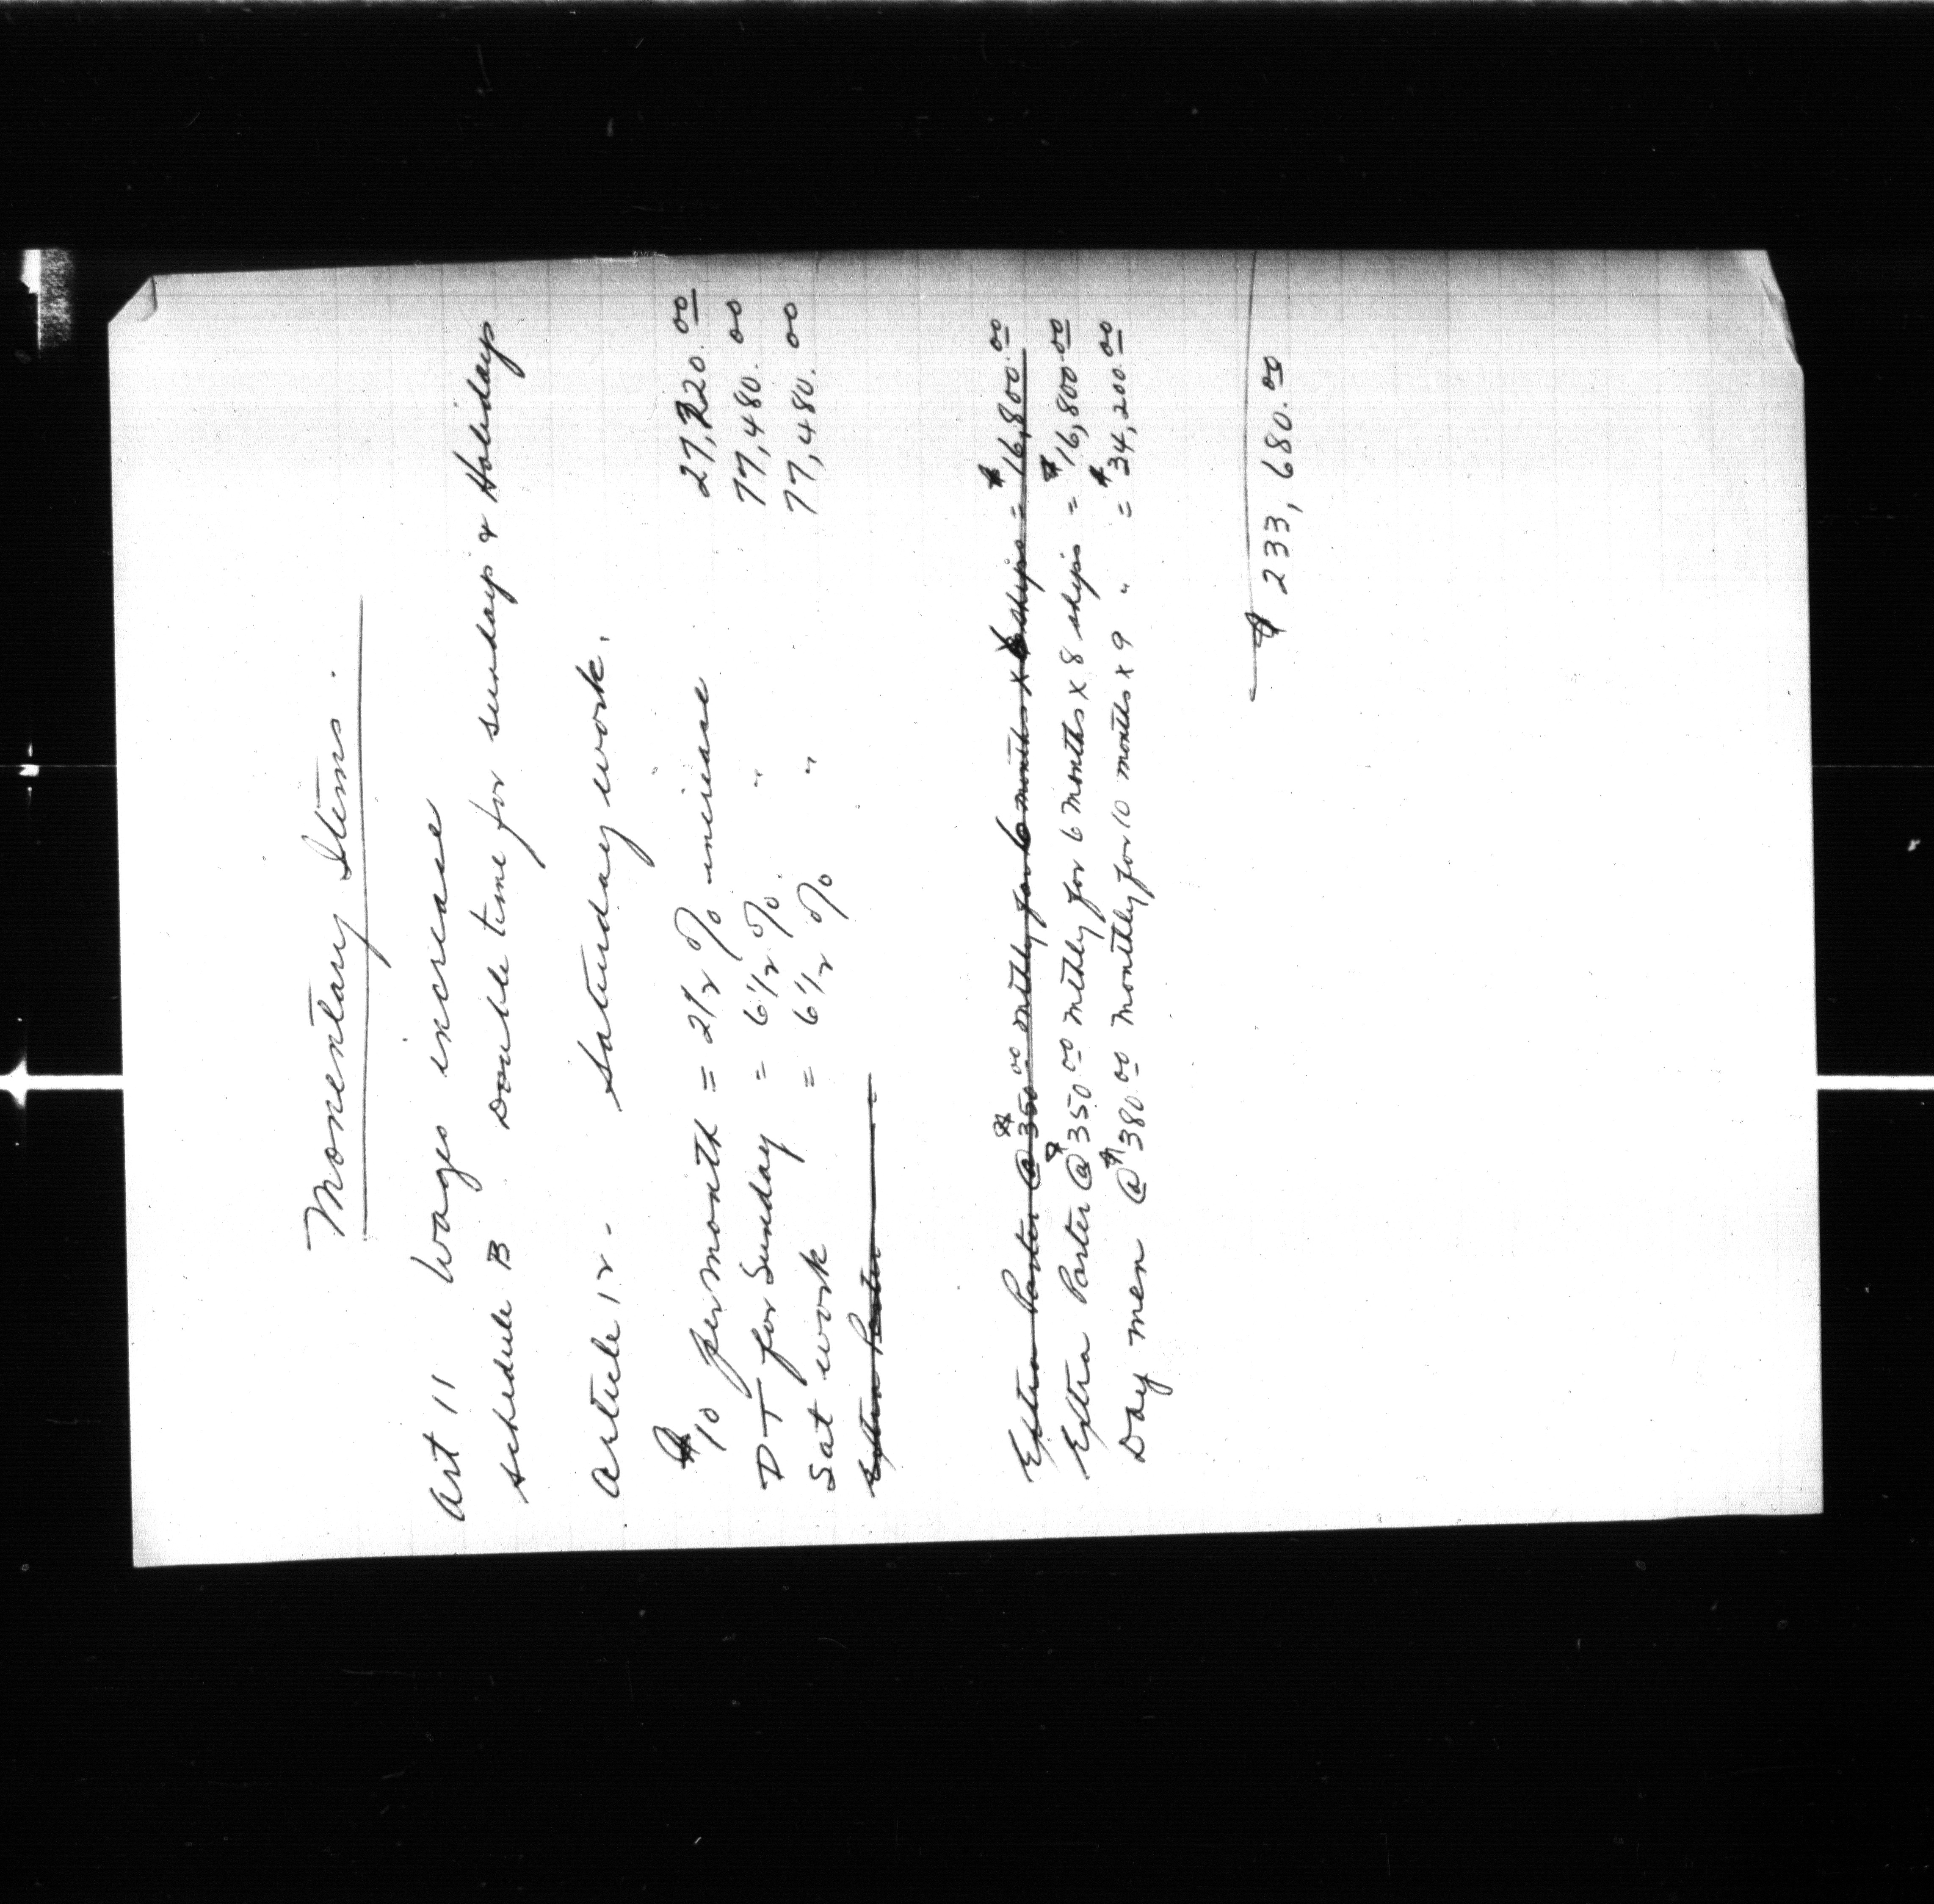 Monentary Items.
Art 11 Wages increase
Schedule B Double time for Sunday & Holidays
Article 12. Saturday work.
$10 per month = 2½% increase 27,720.00
DT for Sunday = 6½%. " 77,480.00
Sat work = 6½% " 77,480.00
Extra Porter
Extra Porter @ $350.00 mthly for 6 months x 8 ships = $16,800.00
Extra Porter @ $350.00 mthly for 6 months x 8 ships = $16,800.00
Day men @ $380.00 monthly for 10 months x 9 " = $34,200.00
$233,680.00